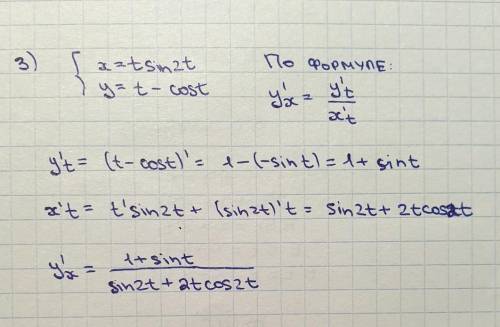 3) { x = t sin2t
y = t - cost
По формуле:
y'x = y't / x't
y't = (t - cost)' = 1 - (-sint) = 1 + sint
x't = t' sin2t + (sin2t)' t = sin2t + 2t cos2t
y'x = 1 + sint / sin2t + 2t cos2t